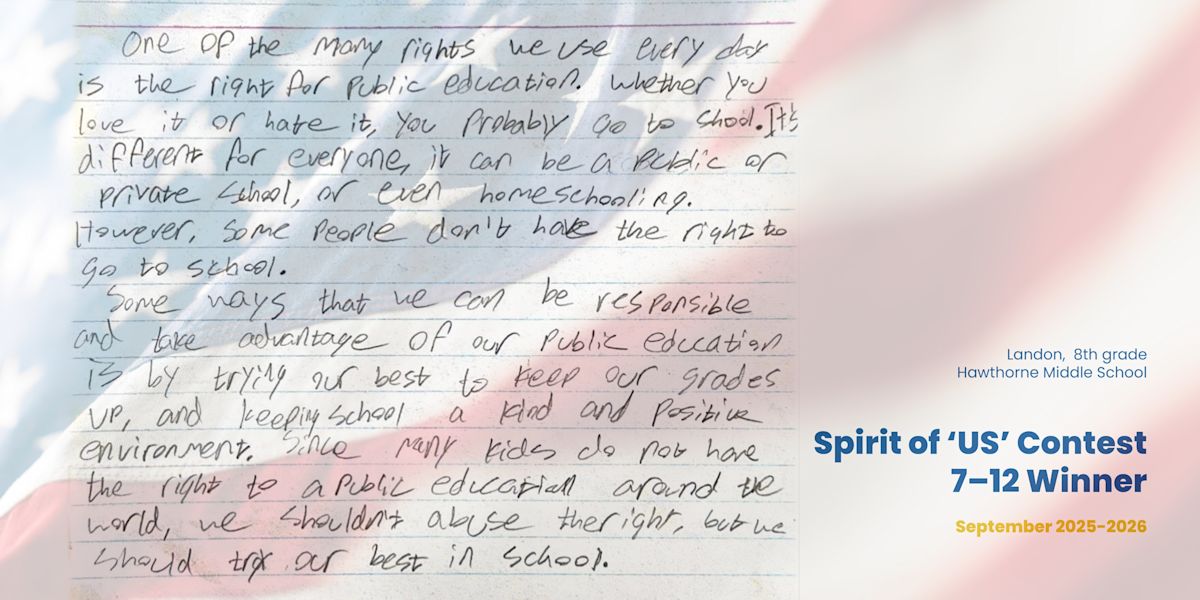 One of the many rights we use every day
is the right for public education. Whether you
love it or hate it, you probably go to shool. It's
different for everyone, it can be a public or
private school, or even homeschooling.
However, some people don't have the right to
go to school.
Some ways that we can be responsible
and take advantage of our public education
is by trying our best to keep our grades
up, and keeping school a kind and positive
environment. Since many kids do not have
the right to a public education around the
world, we shouldn't abuse the right, but we
should try our best in school.
Landon, 8th grade
Hawthorne Middle School
Spirit of ‘US’ Contest
7–12 Winner
September 2025-2026